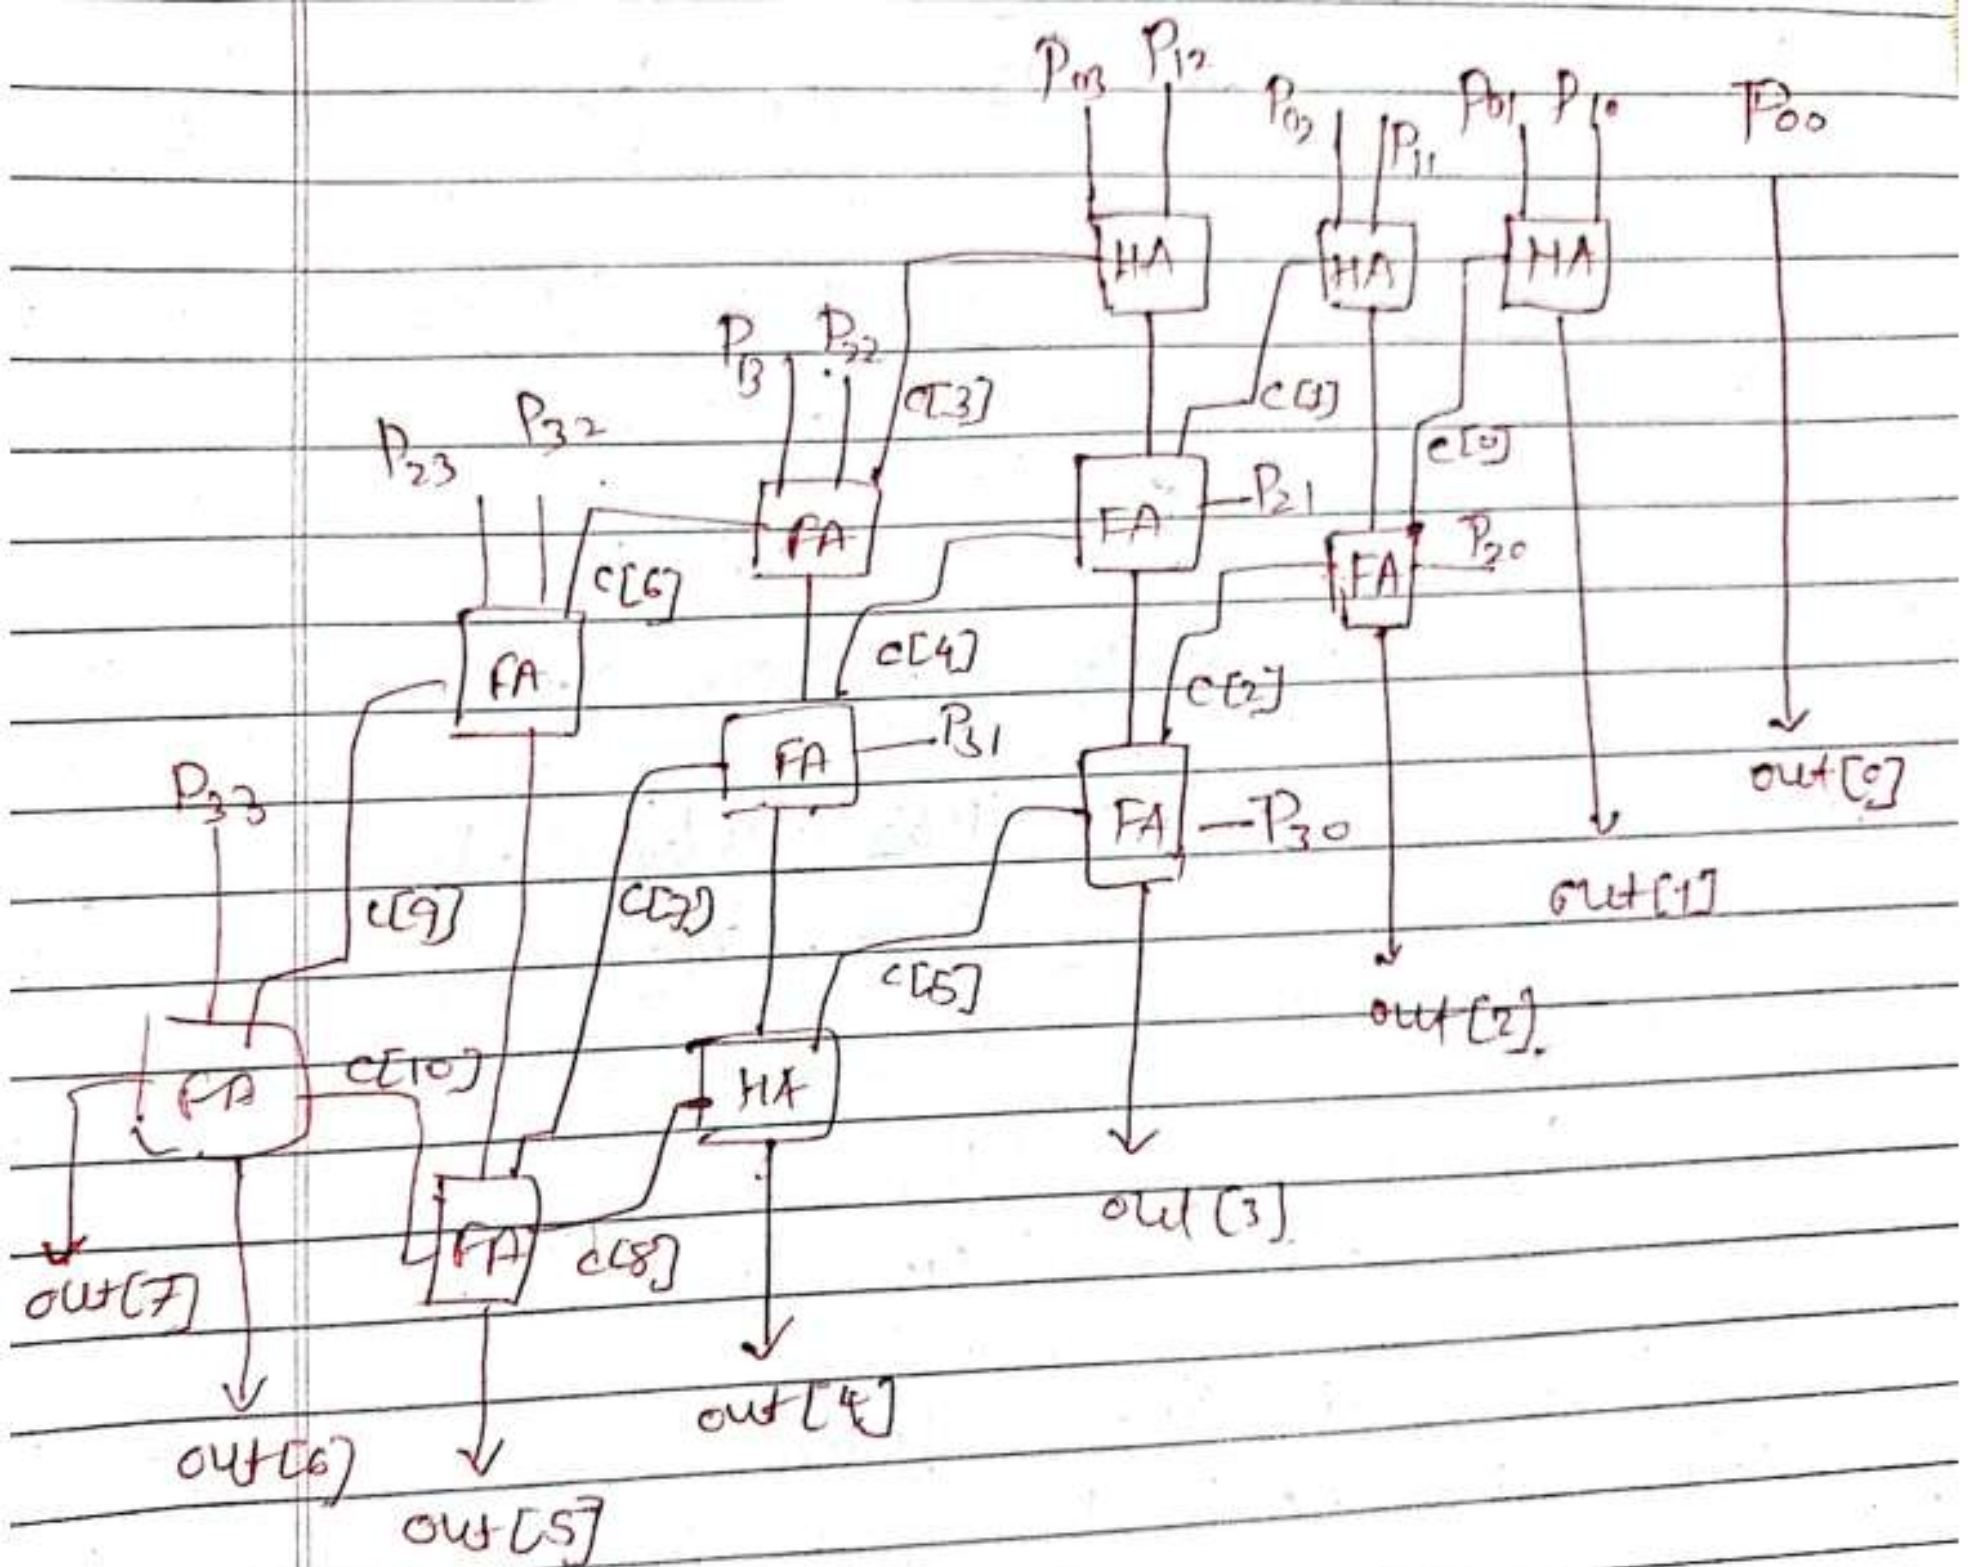 P03 P12
P02 P11 P01 P10 P00
HA HA HA
P13 P22
c[3] c[1]
P23 P32 c[0]
FA FA P21 P20
c[6] FA
FA c[4] c[2]
P33 FA P31
FA P30 out[0]
c[9] c[7] out[1]
c[5] out[2]
FA c[10] HA
FA c[8] out[3]
out[7]
out[4]
out[6]
out[5]